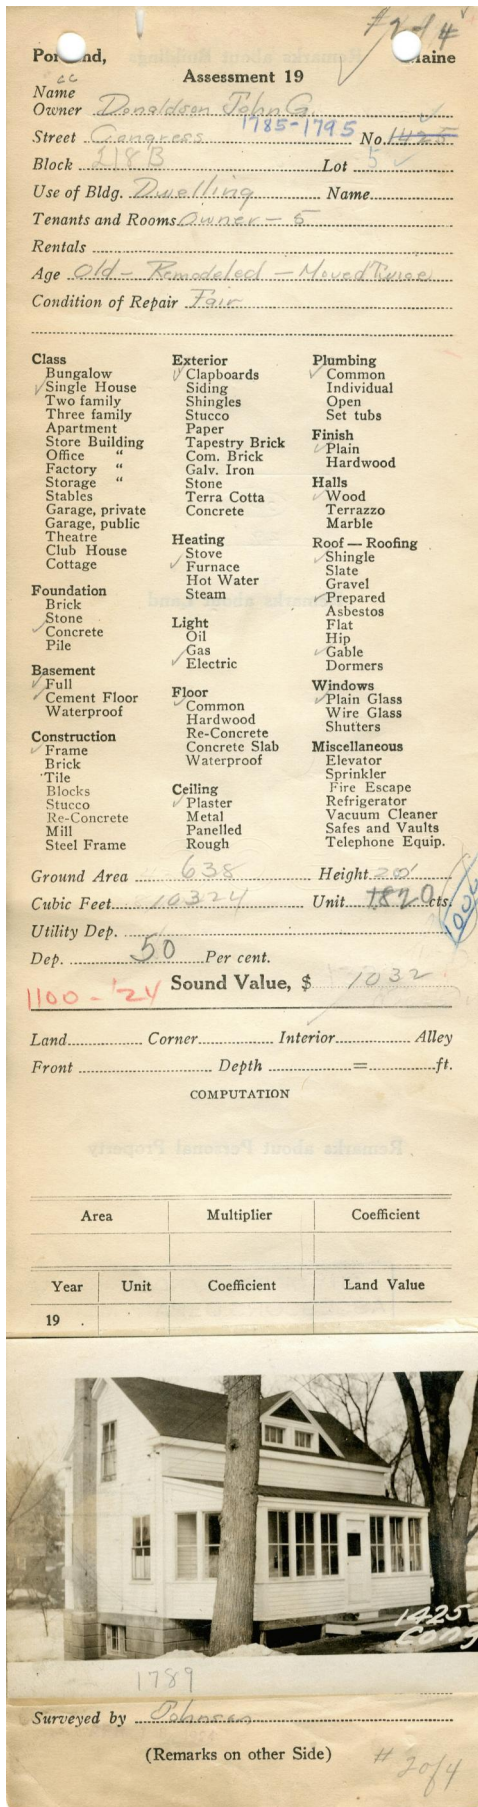 #2 of 4
Portland, Maine
Assessment 19
cc
Name
Owner Donaldson John G.
Street Congress 1785-1795 No. 1425
Block 218B Lot 5
Use of Bldg. Dwelling Name
Tenants and Rooms Owner - 5
Rentals
Age Old - Remodeled - Moved Twice
Condition of Repair Fair
Class
Bungalow
Single House
Two family
Three family
Apartment
Store Building
Office "
Factory "
Storage "
Stables
Garage, private
Garage, public
Theatre
Club House
Cottage
Foundation
Brick
Stone
Concrete
Pile
Basement
Full
Cement Floor
Waterproof
Construction
Frame
Brick
Tile
Blocks
Stucco
Re-Concrete
Mill
Steel Frame
Exterior
Clapboards
Siding
Shingles
Stucco
Paper
Tapestry Brick
Com. Brick
Galv. Iron
Stone
Terra Cotta
Concrete
Heating
Stove
Furnace
Hot Water
Steam
Light
Oil
Gas
Electric
Floor
Common
Hardwood
Re-Concrete
Concrete Slab
Waterproof
Ceiling
Plaster
Metal
Panelled
Rough
Plumbing
Common
Individual
Open
Set tubs
Finish
Plain
Hardwood
Halls
Wood
Terrazzo
Marble
Roof — Roofing
Shingle
Slate
Gravel
Prepared
Asbestos
Flat
Hip
Gable
Dormers
Windows
Plain Glass
Wire Glass
Shutters
Miscellaneous
Elevator
Sprinkler
Fire Escape
Refrigerator
Vacuum Cleaner
Safes and Vaults
Telephone Equip.
Ground Area 638 Height 20'
Cubic Feet 10324 Unit cts.
Utility Dep.
Dep. 50 Per cent.
1100 - '24 Sound Value, $ 1032
Land Corner Interior Alley
Front Depth = ft.
COMPUTATION
Area Multiplier Coefficient
Year Unit Coefficient Land Value
19 .
1425
Cong
1789
Surveyed by Johnson
(Remarks on other Side)
# 2 of 4